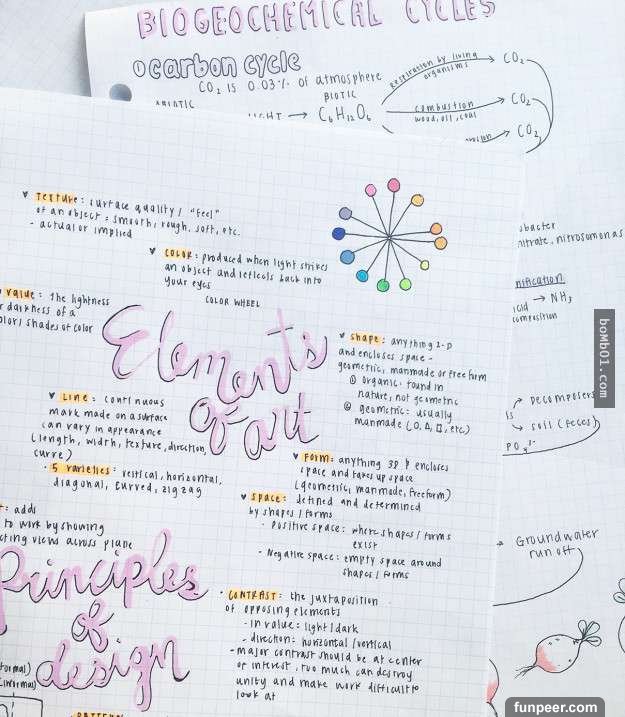 BIOGEOCHEMICAL CYCLES
① carbon cycle
CO₂ IS 0.03% of atmosphere
ABIOTIC
BIOTIC
LIGHT → C₆H₁₂O₆
respiration by living
organisms
CO₂
combustion
wood, oil, coal
CO₂
CO₂
♥ Texture: surface quality / "feel"
of an object: smooth, rough, soft, etc.
- actual or implied
♥ COLOR: produced when light strikes
an object and reflects back into
your eyes
COLOR WHEEL
value: the lightness
or darkness of a
color / shades of color
Elements
of art
♥ shape: anything 2-D
and encloses space -
geometric, manmade or free form
① organic: found in
nature, not geometric
② geometric: usually
manmade (O, Δ, □, etc.)
♥ LINE: continuous
mark made on a surface
can vary in appearance
(length, width, texture, direction,
curve)
· 5 varieties: vertical, horizontal,
diagonal, curved, zigzag
♥ FORM: anything 3D & encloses
space and takes up space
(geometric, manmade, freeform)
♥ SPACE: defined and determined
by shapes / forms
· Positive space: where shapes / forms
exist
· Negative space: empty space around
shapes / forms
: adds
to work by showing
cting views across plane
Principles
of
design
· CONTRAST: the juxtaposition
of opposing elements
- in value: light / dark
- direction: horizontal / vertical
- major contrast should be at center
of interest, too much can destroy
unity and make work difficult to
look at
formal)
(informal)
PATTERN
obacter
nitrate, nitrosomonas
nification
acid → NH₃
composition
→ Decomposers
→ soil (feces)
PO₄³⁻
→ Groundwater
run off
bomb01.com
funpeer.com